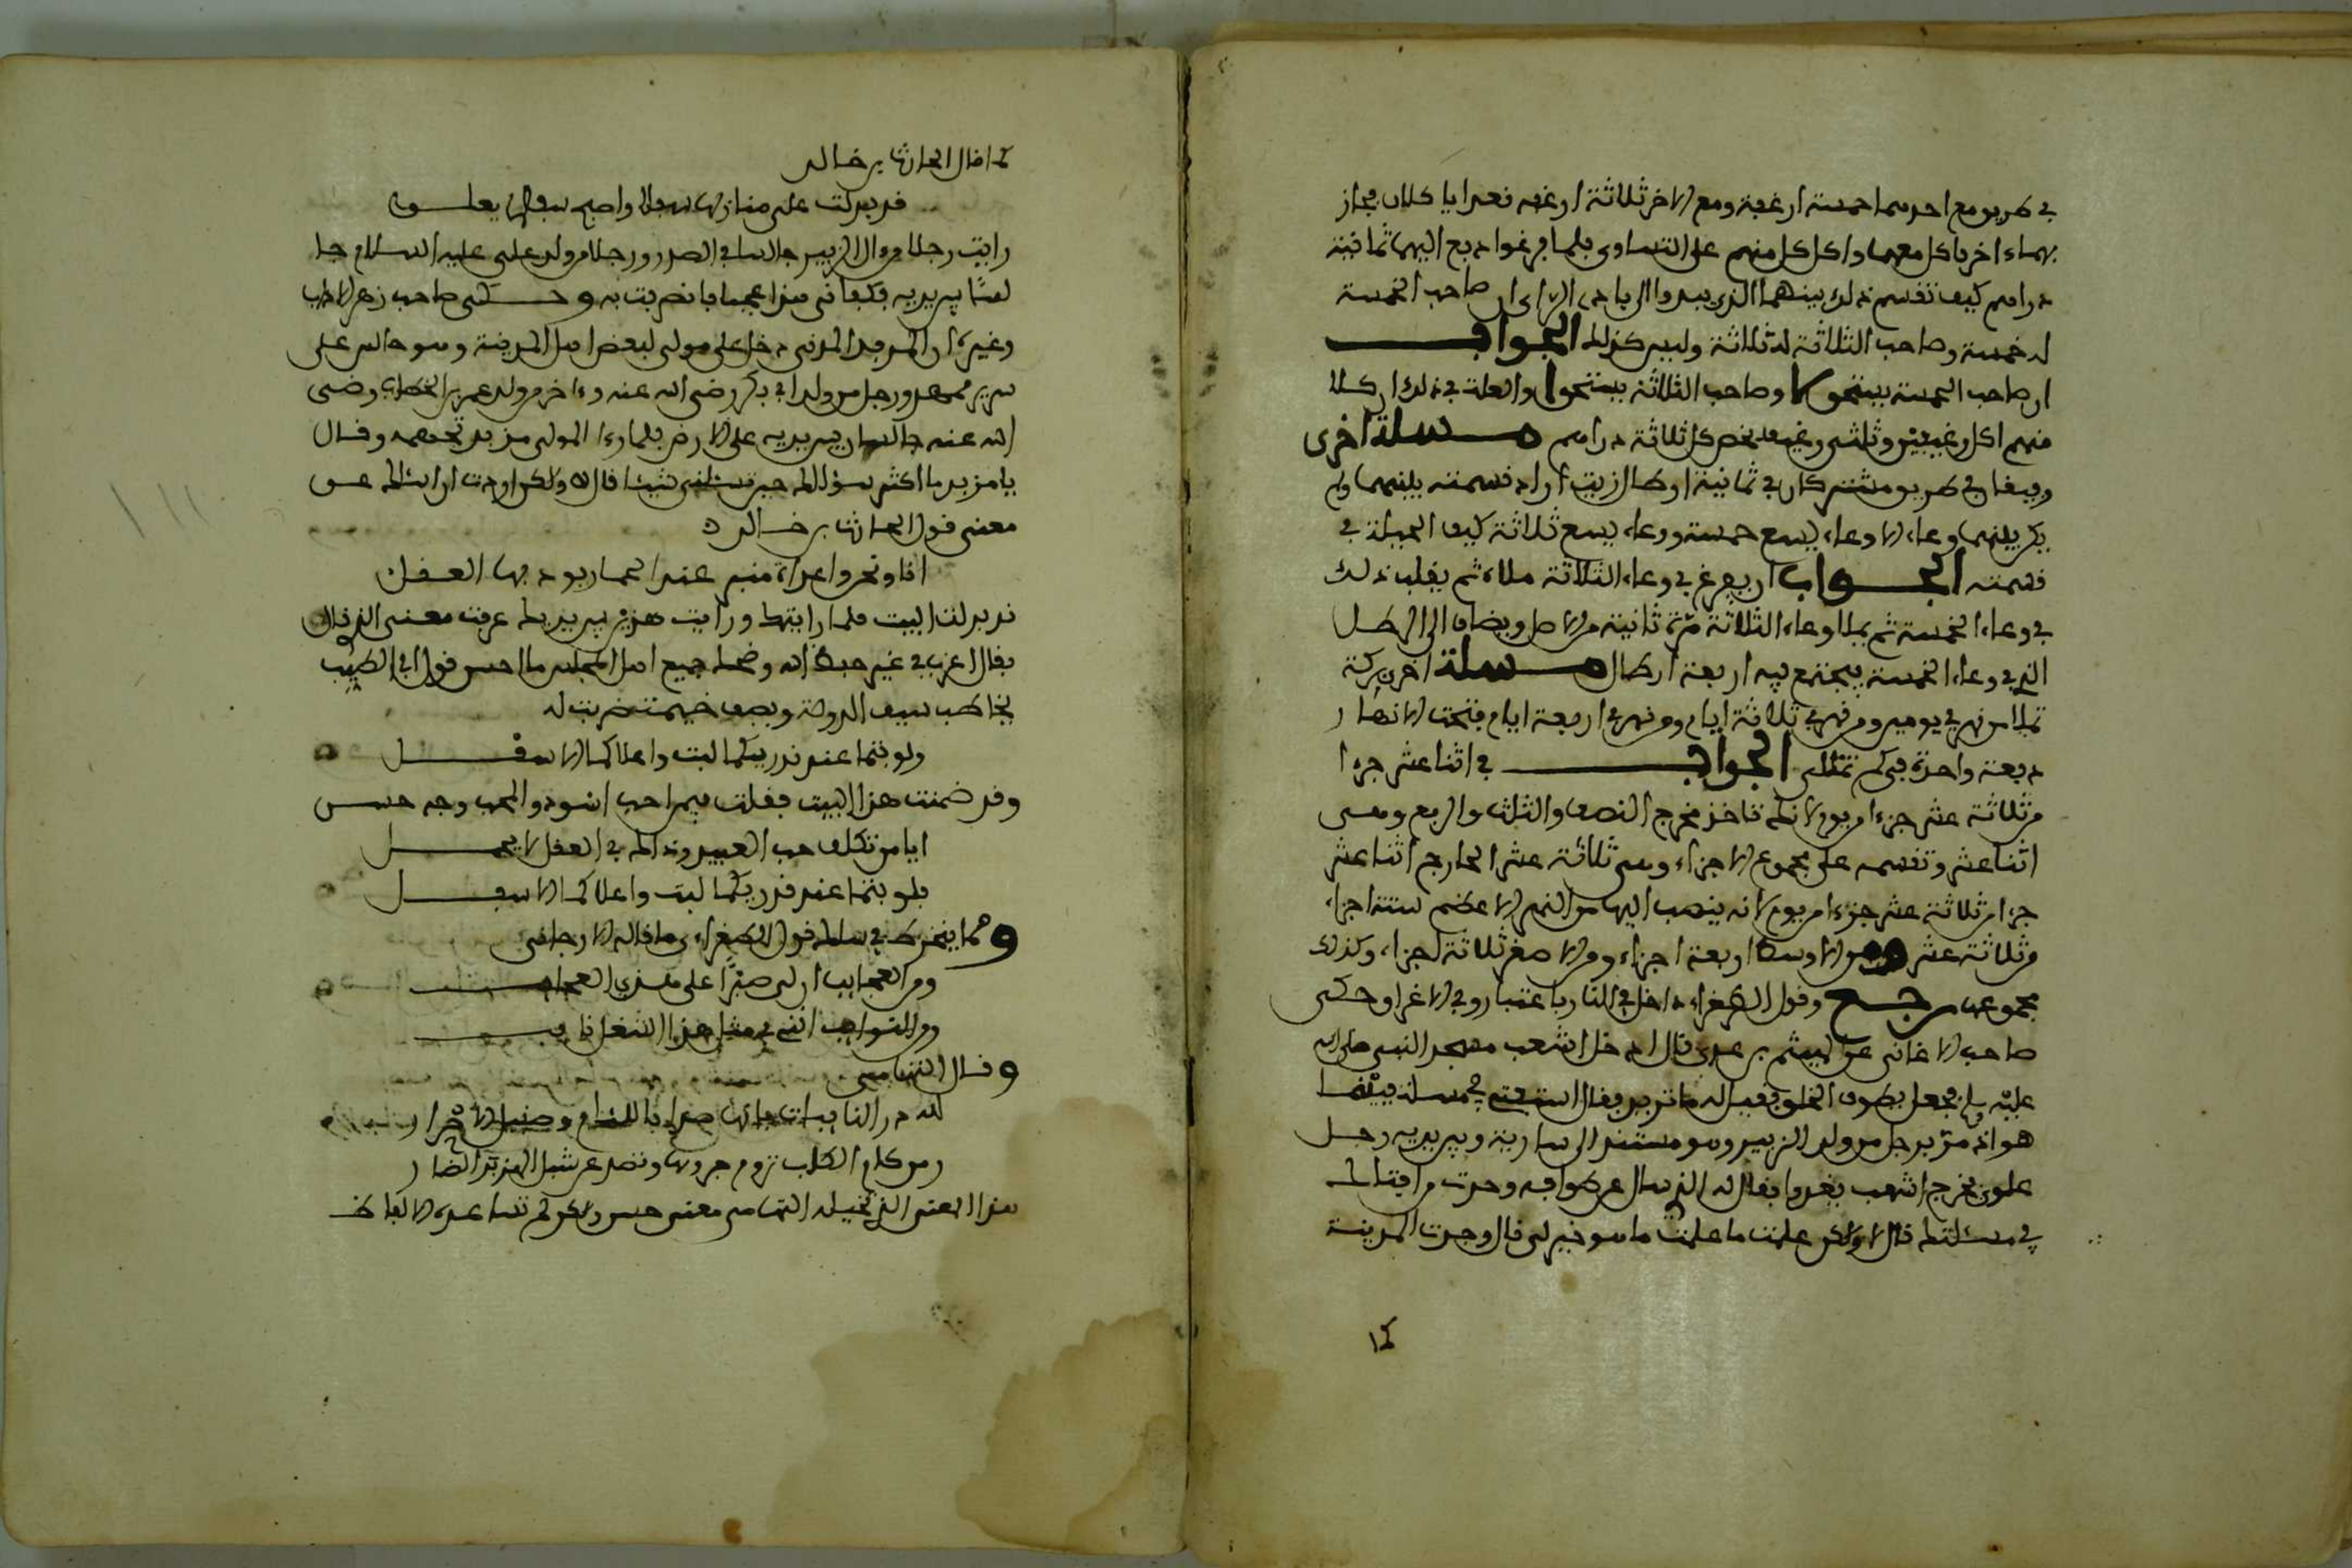 في طريق مع احدهما خمسة ارغفة ومع الاخر ثلاثة ارغفه فعدا ياكلان فجاز
بهما ءاخر فاكل معهما واكل كل منهم على التساوي فلما فرغوا دفع اليهما ثمانية
دراهم كيف تقسم ذلك بينهما الذي يبدوا الى بادي الراي ان صاحب الخمسة
له خمسة وصاحب الثلاثة له ثلاثة وليس كذلك الجواب
ان صاحب الخمسة يستحق وصاحب الثلاثة يستحق والعلة في ذلك ان كلا
منهم اكل رغيفين وثلثي رغيف يخص كل ثلاثة دراهم مسلة اخرى
رفيقان في طريق مشتركان في ثمانية ارطال زيت اراد قسمته بينهما ولم
يكن بينهما وعاء الا وعاء يسع خمسة ووعاء يسع ثلاثة كيف الحيلة في
قسمته الجواب ان يفرغ في وعاء الثلاثة ملاه ثم يقلب ذلك
في وعاء الخمسة ثم يملا وعاء الثلاثة مرة ثانية من الاصل ويضاف الى الرطل
الذي في وعاء الخمسة فيجتمع فيه اربعة ارطال مسلة اخرى بركة
تملا من نهر في يومين ومن نهر في ثلاثة ايام ومن نهر في اربعة ايام فتحت الانهار
دفعة واحدة في كم تمتلى الجواب في اثنا عشر جزءا
من ثلاثة عشر جزءا من يوم لانك تاخذ مخرج النصف والثلث والربع وهي
اثنا عشر وتقسمه على مجموع الاجزاء وهي ثلاثة عشر الخارج اثنا عشر
جزءا من ثلاثة عشر جزءا من يوم لانه ينصب اليها من النهر الاعظم ستة اجزاء
من ثلاثة عشر ومن الاوسط اربعة اجزاء ومن الاصغر ثلاثة اجزاء وكذلك
مجموعها رجع وقول الطغراءي داخل في النار باعتبار وفي الاغرا وحكى
صاحب الاغاني عن الهيثم بن عدي قال دخل اشعب مسجد النبي صلى الله
عليه وسلم فجعل يطوف الخلق فقيل له ما تريد فقال استفتي في مسلة فبينما
هو اذ مر برجل من ولد الزبير وهو مستند الى سارية وبين يديه رجل
علوي فخرج اشعب يغدوا فقال له الذي سال عن طوافه وجدت من افتاك
في مسئلتك قال لا ولكن علمت ما علمت ما هو خير لي قال وجدت المدينة
كما
كما قال الحارث بن خالد
قد بدلت على منازلها سفلا واصبح سفلها يعلو
رايت رجلا من ءال الزبير جالسا في الصدر ورجلا من ولد علي عليه السلام جا
لسا بين يديه فكفاني هذا عجبا فانصرفت به وحكى صاحب زهر الاداب
وغيره ان المزبد المدني دخل على مولى لبعض اهل المدينة وهو جالس على
سرير ممهد ورجل من ولد ابي بكر رضى الله عنه وءاخر من ولد عمر بن الخطاب رضى
الله عنه جالسان بين يديه على الارض فلما رءا المولى مزبد تجهمه وقال
يا مزبد ما اكثر سؤالك جيت تسئلني شيئا قال لا ولكن اردت ان اسئلك عن
معنى قول الحارث بن خالد
انا ونحروا غداة منى عند الجمار يودها العقل
قد بدلت البيت فلما رايتك ورايت هذين بين يديك عرفت معنى الذي قال
فقال اعزب في غير حفظ الله وضحك جميع اهل المجلس ما احسن قول ابي الطيب
يخاطب سيف الدولة ويصف خيمة ضربت له
ولو بتما عند قدريكما لبت واعلاكما الاسفل
وقد ضمنت هذا البيت فقلت فيمن احب اسود والمحب وجه حسن
ايا من تكلف حب العبيد وذالك في العقل لا يجمل
فلو بتما عند قدريكما لبت واعلاكما الاسفل
ومما ينخرط في سلك قول الطغراءي ما قاله الارجاني
ومن العجايب ان لي صبرا على هذي العجايب
ومن النوايب انني في مثل هذا الشغل نايب
وقال التهامي
لله در النايبات فانها صدا اللئام وصيقل الاحرار
ومن كلام الكلاب تروم جروها وتصد عن شبل الهزبر الضار
هذا المعنى الذي تخيله التهامي معنى حسن ولكن لم تساعده الالفاظ